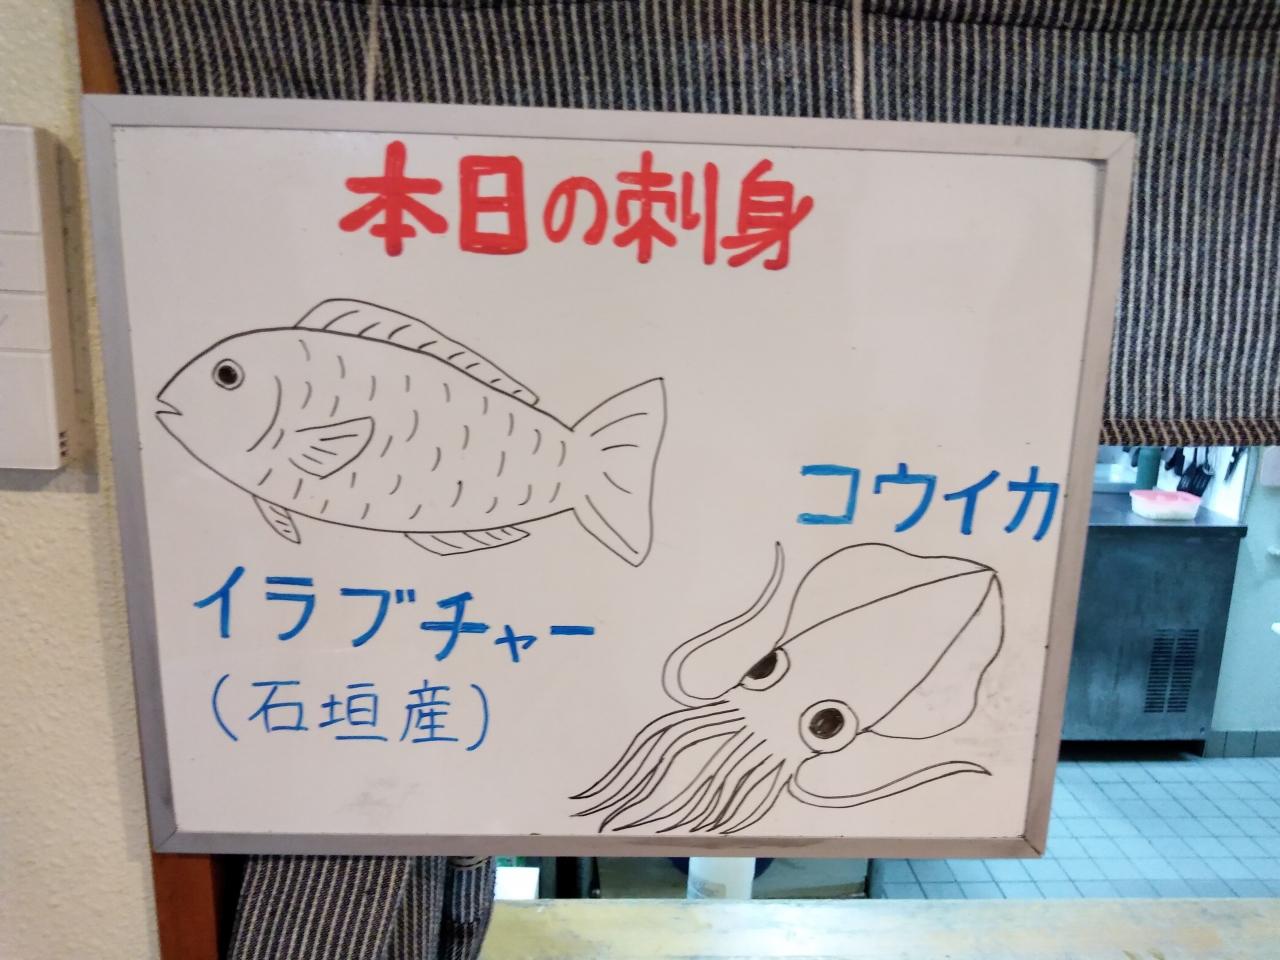 本日の刺身
コウイカ
イラブチャー
(石垣産)